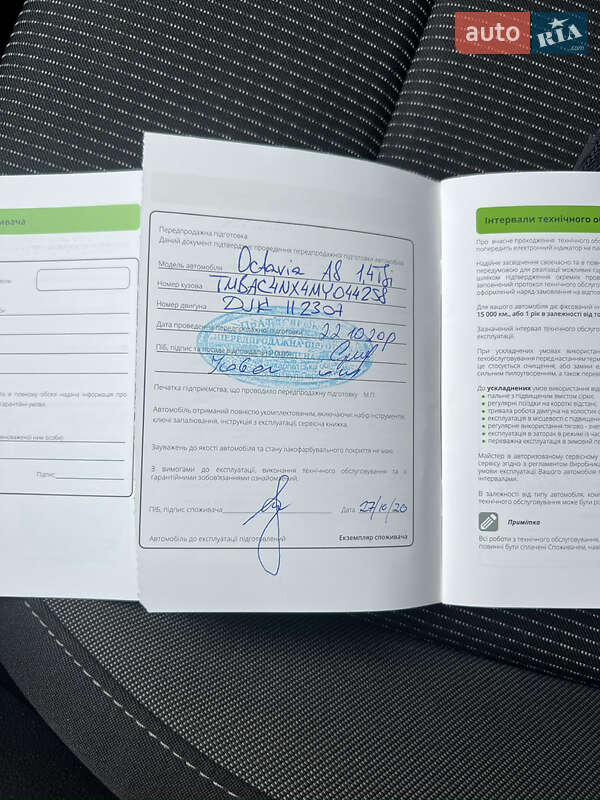 auto RIA.com
Передпродажна підготовка
Даний документ підтверджує проведення передпродажної підготовки автомобіля
Модель автомобіля Octavia A8 1.4TSi
Номер кузова TMBAC4NX4MY044258
Номер двигуна DJK 112307
Дата проведення передпродажної підготовки 22.10.20р
ПІБ, підпис та посада відповідальної особи
Печатка підприємства, що проводило передпродажну підготовку М.П.
Автомобіль отриманий повністю укомплектованим, включаючи: набір інструментів,
ключі запалювання, інструкція з експлуатації, сервісна книжка.
Зауважень до якості автомобіля та стану лакофарбувального покриття не маю.
З вимогами до експлуатації, виконання технічного обслуговування та з
гарантійними зобов'язаннями ознайомлений.
ПІБ, підпис споживача Дата 27/10/20
Автомобіль до експлуатації підготовлений Екземпляр споживача
ивача
в повному обсязі надана інформація про
гарантійні умови.
Підпис
Інтервали технічного об
Про вчасне проходження технічного обсл
попередить електронний індикатор на па
Надійне засвідчення своєчасно та в повно
передумовою для реалізації можливих гар
шляхом підтвердження окремих провед
заповнений протокол технічного обслугов
оформлений наряд-замовлення на відпов
Для вашого автомобіля діє фіксований
15 000 км., або 1 рік в залежності від то
Зазначений інтервал технічного обслугов
експлуатації.
При ускладнених умовах використання
техобслуговування перед настанням термі
це стосується очищення, або заміни е
сильним пилоутворенням, а також перев
До ускладнених умов використання від
пальне з підвищеним вмістом сірки;
регулярні поїздки на короткі відстані;
тривала робота двигуна на холостих о
експлуатація в місцевості з підвищен
регулярне використання тягово-
експлуатація в заторах в режимі із час
переважна експлуатація в зимовий пе
Майстер в авторизованому сервісному
сервісу згідно з регламентом Виробника
умови експлуатації Вашого автомобіля
інтервалами.
В залежності від типу автомобіля, комп
технічного обслуговування може бути роз
Примітка
Всі роботи з технічного обслуговування,
повинні бути сплачені Споживачем, нав